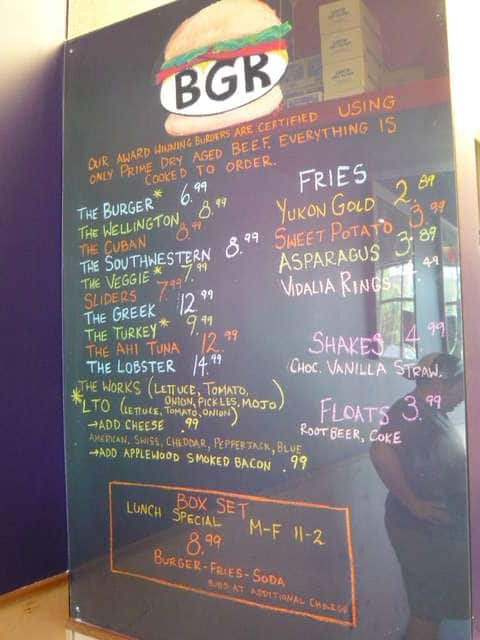 BGR
OUR AWARD WINNING BURGERS ARE CERTIFIED USING
ONLY PRIME DRY AGED BEEF. EVERYTHING IS
COOKED TO ORDER.
THE BURGER* 6.99
THE WELLINGTON 8.99
THE CUBAN 8.99
THE SOUTHWESTERN 8.99
THE VEGGIE* 7.99
SLIDERS 7.99
THE GREEK 12.99
THE TURKEY* 9.99
THE AHI TUNA 12.99
THE LOBSTER 14.99
THE WORKS (LETTUCE, TOMATO,
ONION, PICKLES, MOJO)
*LTO (LETTUCE, TOMATO, ONION)
→ADD CHEESE .99
AMERICAN, SWISS, CHEDDAR, PEPPERJACK, BLUE
→ADD APPLEWOOD SMOKED BACON .99
FRIES
YUKON GOLD 2.89
SWEET POTATO 3.99
ASPARAGUS 3.89
VIDALIA RINGS
SHAKES 4.99
CHOC. VANILLA STRAW.
FLOATS 3.99
ROOTBEER, COKE
BOX SET
LUNCH SPECIAL M-F 11-2
8.99
BURGER-FRIES-SODA
AT ADDITIONAL CHARGE